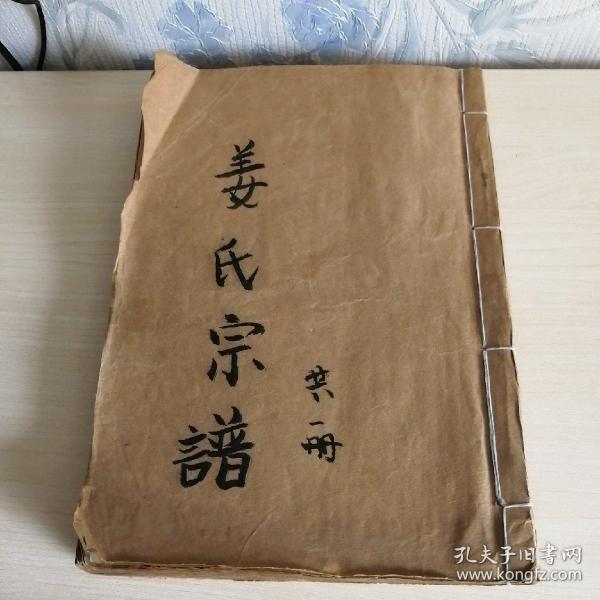 姜氏宗譜
共一册
孔夫子旧书网
www.kongfz.com